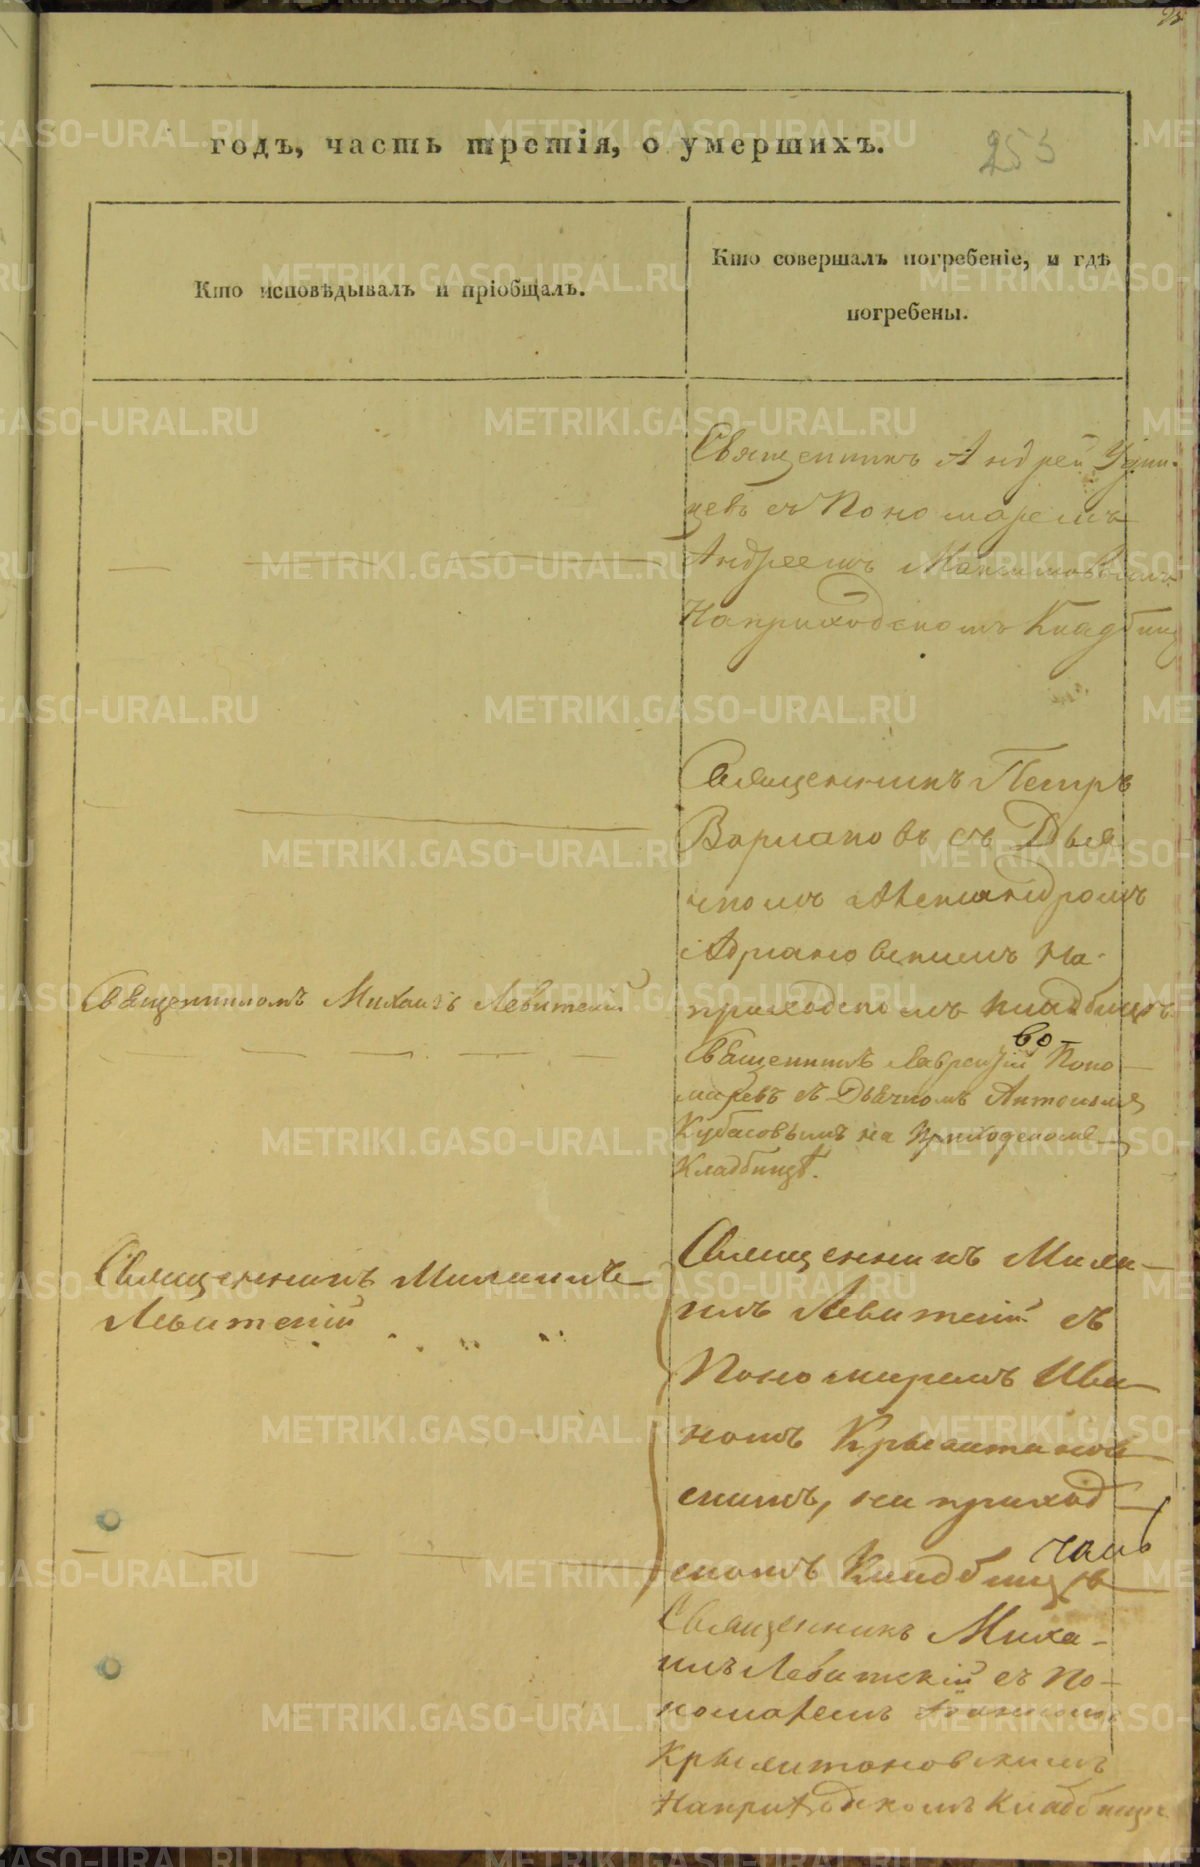 253
годъ, часть третія, о умершихъ.
Кто исповѣдывалъ и пріобщалъ.
Кто совершалъ погребеніе, и гдѣ
погребены.
Священникъ Андрей
съ Пономаремъ
Андреемъ
На приходскомъ Кладбищ
Священникъ Петръ
съ Дья
чкомъ Александромъ
Адріановскимъ на
приходскомъ кладбищѣ
Священникомъ Михаилъ Левитскій
во
Священникъ Лаврентій Поно
маревъ съ Дьячкомъ
Кубасовымъ на приходскомъ
Кладбищѣ.
Священникъ Михаилъ
Левитскій
Священникъ Миха
илъ Левитскій съ
Пономаремъ Ива
номъ
скимъ, на приход
чашь
скомъ Кладбищѣ
Священникъ Миха-
илъ Левитскій съ По-
номаремъ
На приходскомъ Кладбищѣ
METRIKI.GASO-URAL.RU